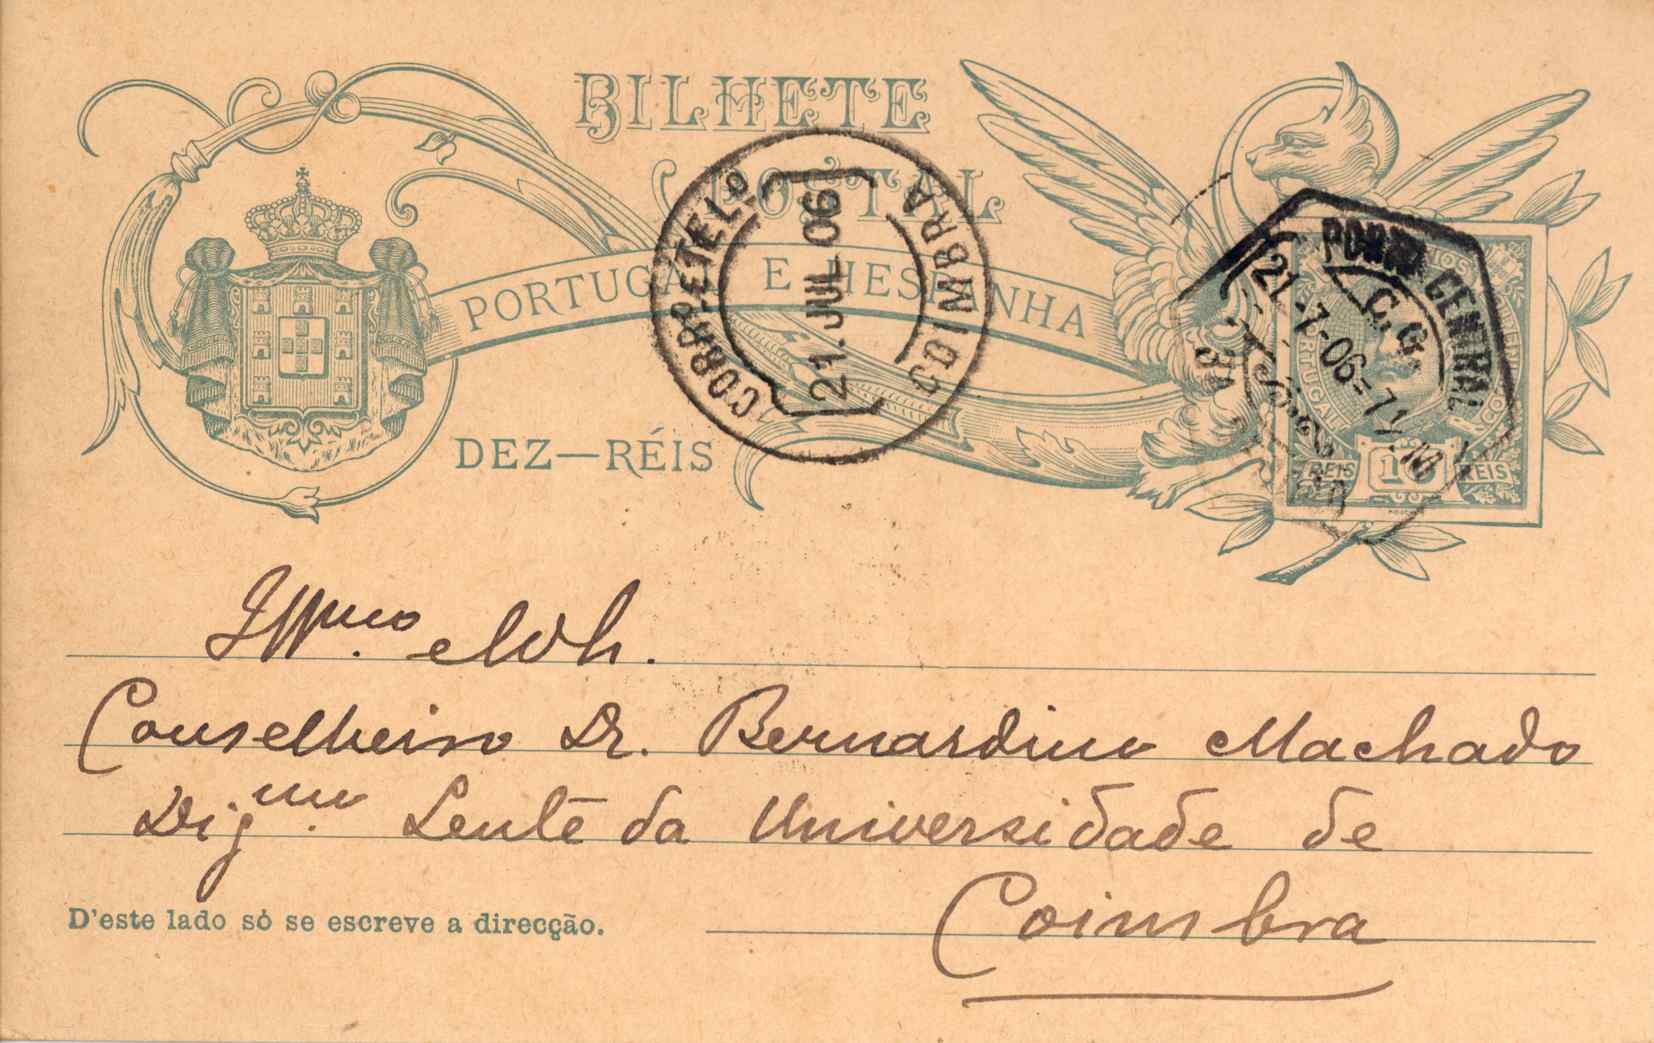 BILHETE
POSTAL
PORTUGAL E HESPANHA
DEZ—RÉIS
CORRº E TELº
21. JUL 06
COIMBRA
PORTO CENTRAL
21-7-06
REIS 10 REIS
Illmo. e Exmo. Snr.
Conselheiro Dr. Bernardino Machado
Digmo. Lente da Universidade de
Coimbra
D'este lado só se escreve a direcção.